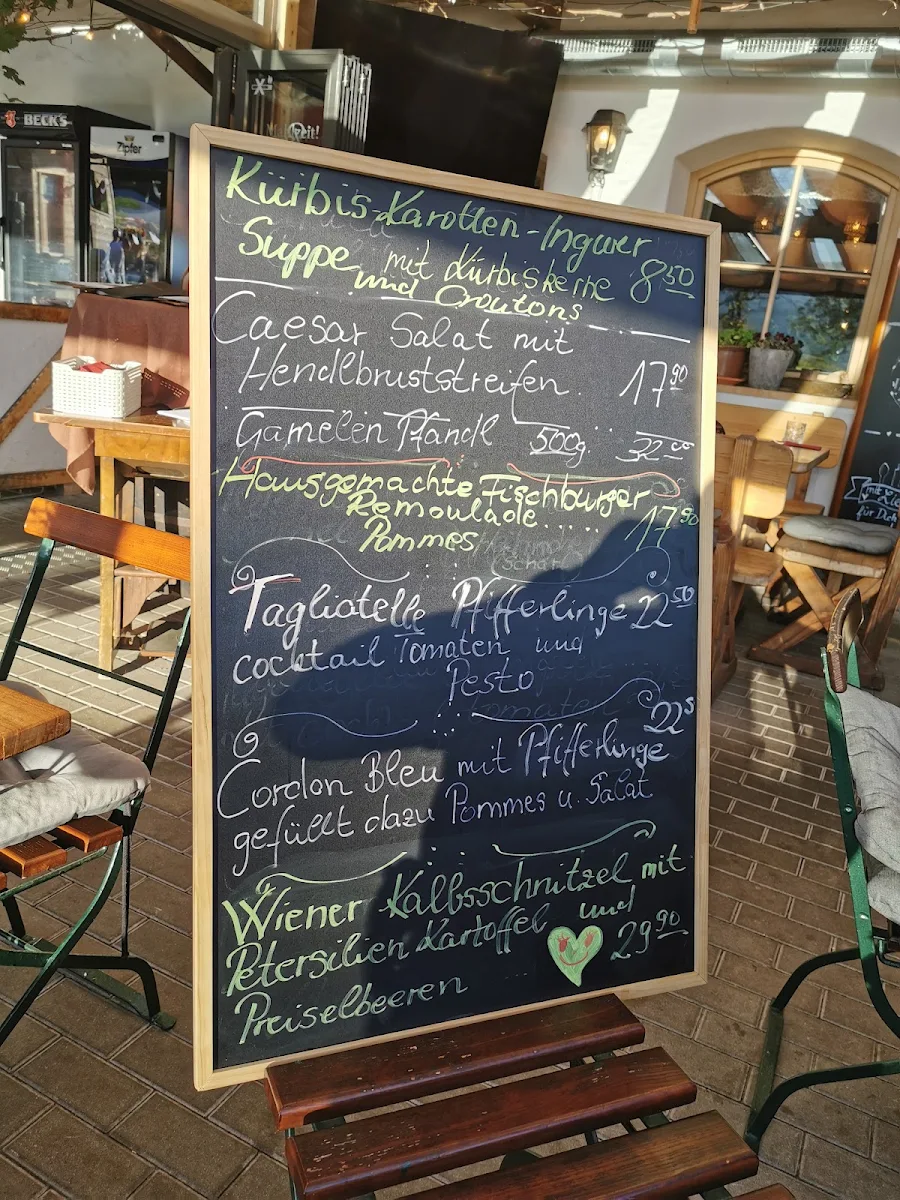 BECK'S
Zipfer
Kürbis-Karotten-Ingwer
Suppe mit Kürbiskerne 8⁵⁰
und Croutons
Caesar Salat mit
Hendlbruststreifen. 17⁹⁰
Garnelen Pfandl 500g. 32⁰⁰
Hausgemachte Fischburger
Remoulade 17⁹⁰
Pommes
Tagliatelle Pfifferlinge 22⁵⁰
cocktail Tomaten und
Pesto
22⁵
Cordon Bleu mit Pfifferlinge
gefüllt dazu Pommes u. Salat
Wiener Kalbsschnitzel mit
Petersilien Kartoffel und
Preiselbeeren 29⁹⁰
für Dich